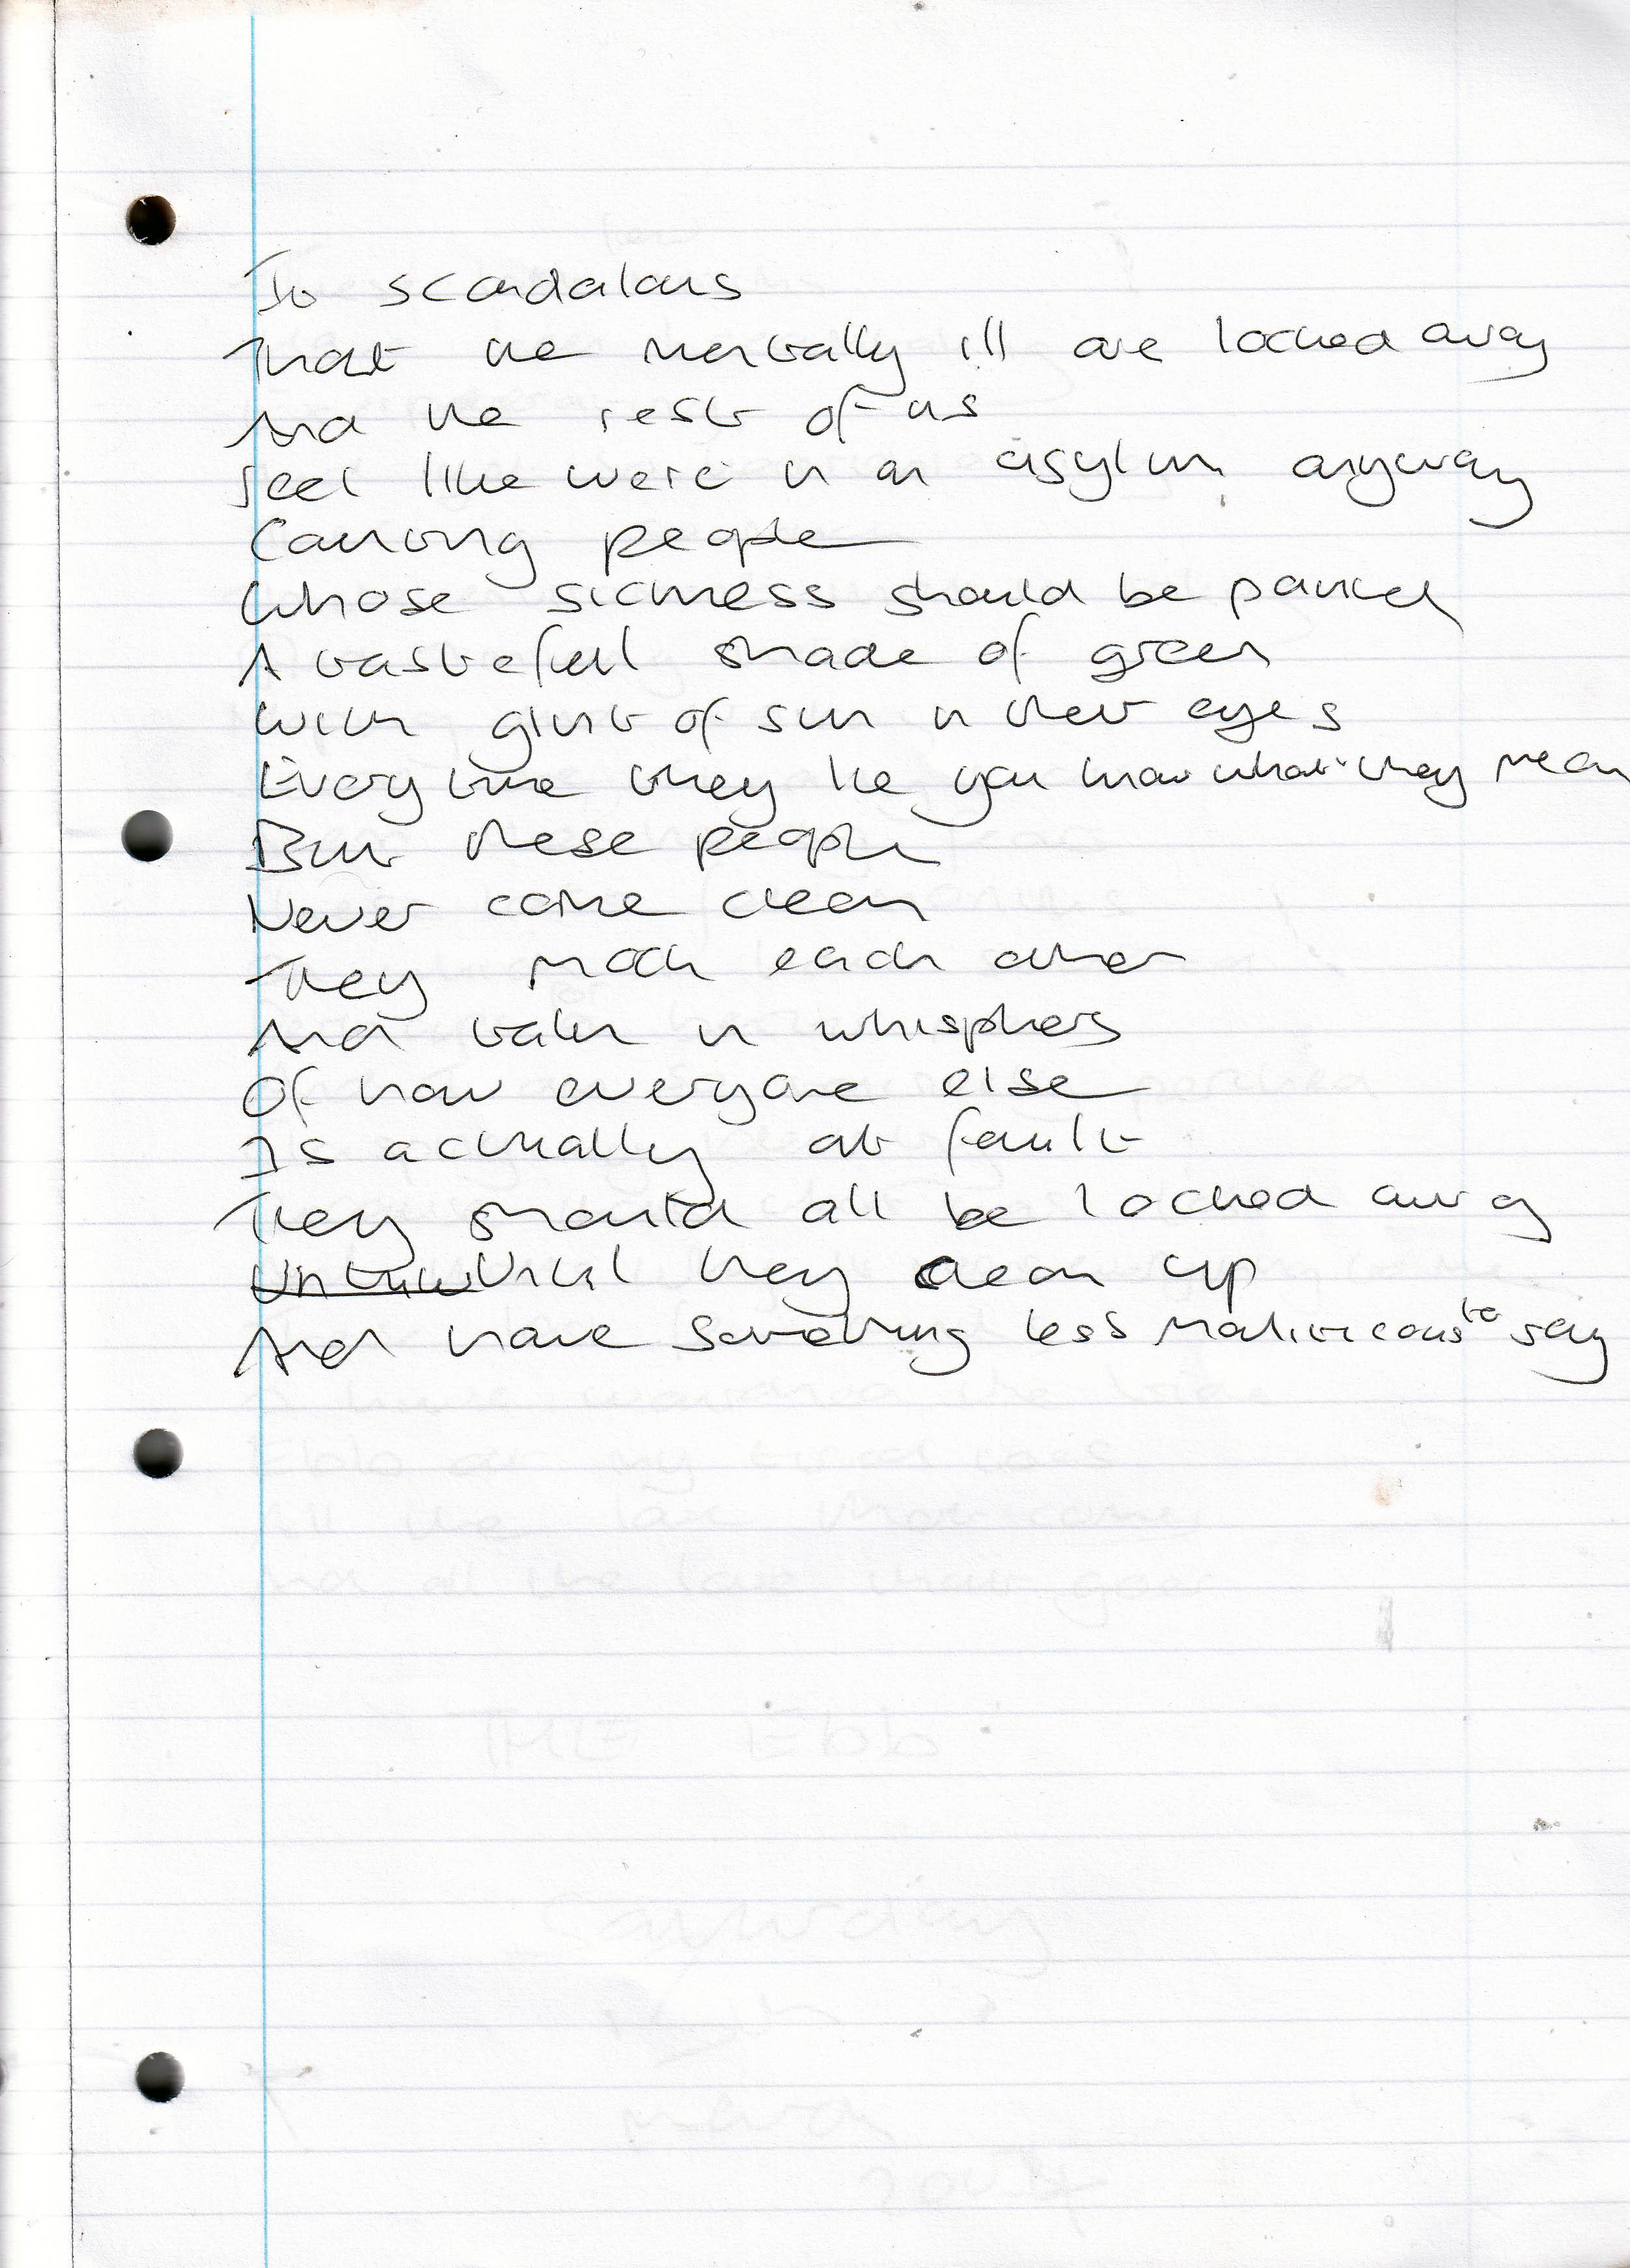 Its scandalous
That the mentally ill are locked away
And the rest of us
Feel like were in an asylum anyway
people
Whose sickness should be painted
A tasteful shade of green
With glint of sun in their eyes
Every time they lie you know what they mean
But these people
Never come clean
They mock each other
And talk in whisphers
Of how everyone else
Is actually at fault
They should all be locked away
Until they clean up
And have something less maliceous to say
THE Ebb
Saturday
March